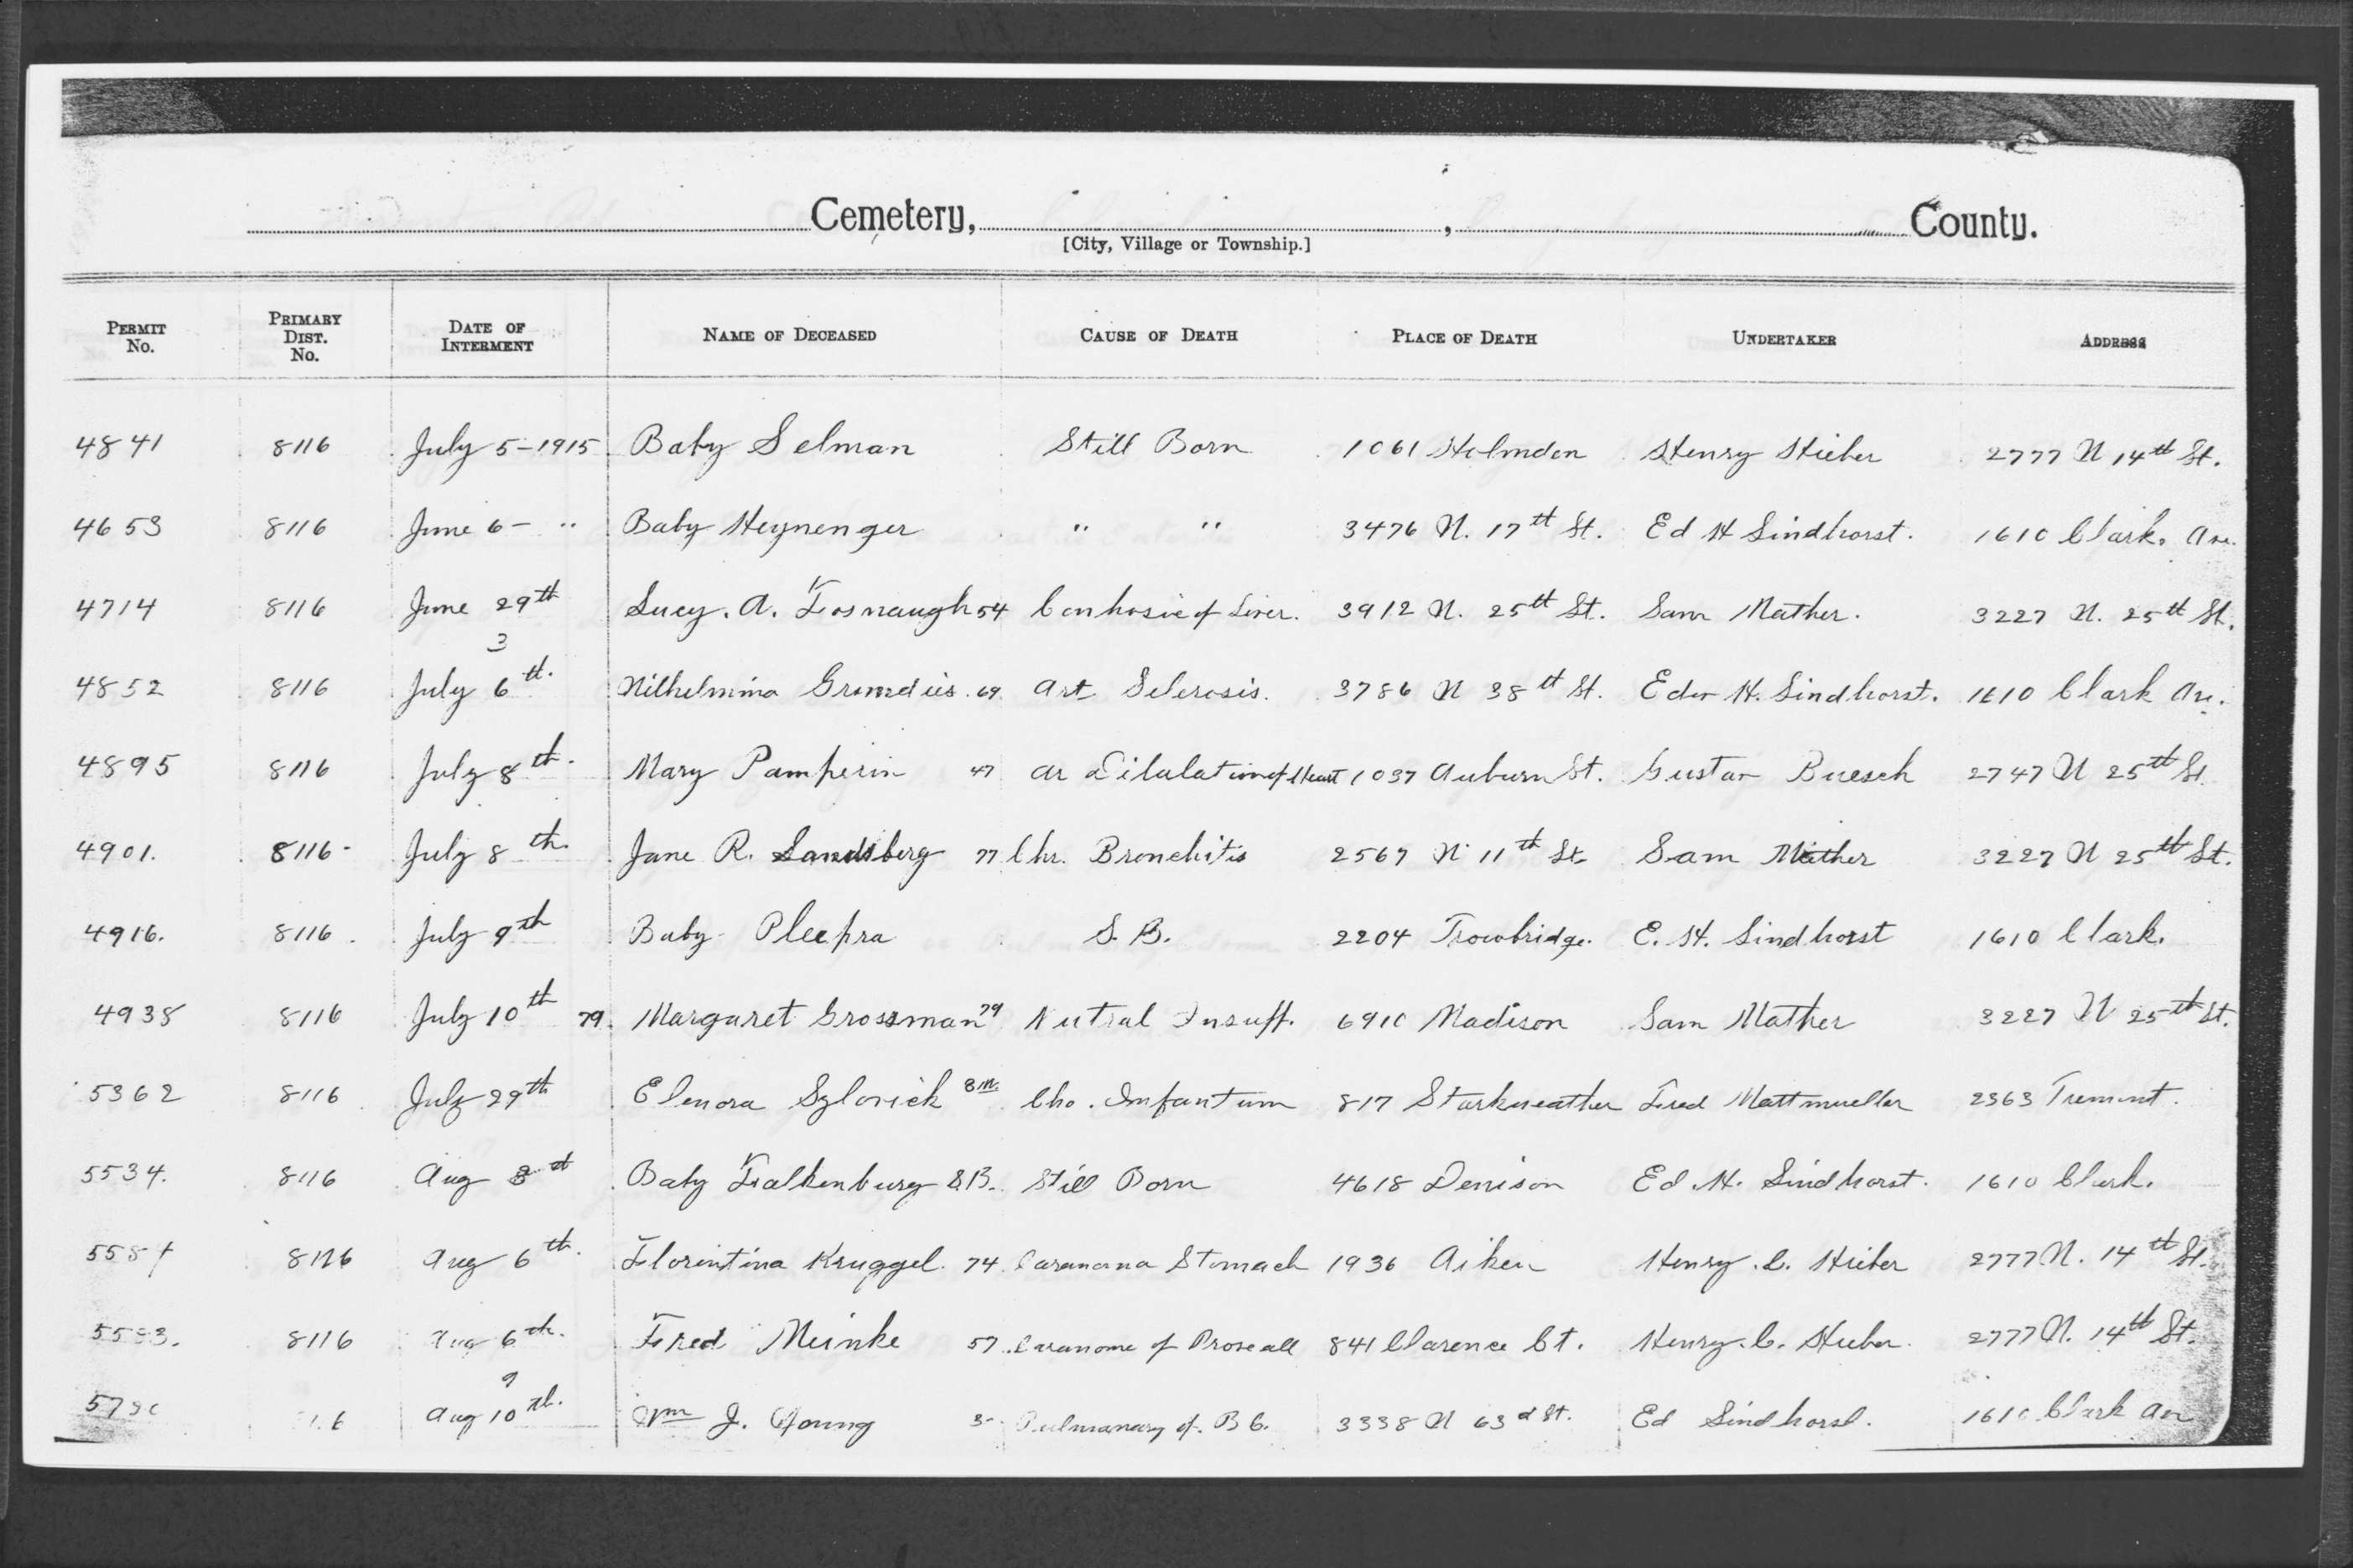 Cemetery, , County.
[City, Village or Township.]
PERMIT No. PRIMARY DIST. No. DATE OF INTERMENT NAME OF DECEASED CAUSE OF DEATH PLACE OF DEATH UNDERTAKER ADDRESS
4841 8116 July 5-1915 Baby Selman Still Born 1061 Holmden Henry Hieber 2777 W 14th St.
4653 8116 June 6 - " Baby Heynenger " " 3476 W. 17th St. Ed H Sindhorst. 1610 Clark. Ave.
4714 8116 June 29th Lucy. A. Fosnaugh 54 of Liver. 3912 W. 25th St. Sam Mather. 3227 W. 25th St.
3
4852 8116 July 6th. Wilhelmina 69. Art Sclerosis. 3786 W 38th St. Edw H. Sindhorst. 1610 Clark Ave.
4895 8116 July 8th. Mary Pamperin 47 ar Dilalation of Heart 1037 Auburn St. Gustav Buesch 2747 W 25th St.
4901. 8116- July 8th. Jane R. Sandsberg 77 Chr. Bronchitis 2567 W 11th St. Sam Mather 3227 W 25th St.
4916. 8116. July 9th Baby Pleepra S. B. 2204 Trowbridge. E. H. Sindhorst 1610 Clark.
4938 8116 July 10th 79. Margaret Grossman 79 Insuff. 6910 Madison Sam Mather 3227 W 25th St.
5362 8116 July 29th Elenora Sylovick 8 m. Cho. Infantum 817 Starkweather Fred Mattmueller 2363 Tremont.
5534. 8116 Aug Baby Falkenburg S.B. Still Born 4618 Denison Ed. H. Sindhorst. 1610 Clark.
8116 Aug 6th. Florintina Kruggel. 74 Stomach 1936 Aiken Henry. C. Hieber 2777 W. 14th St.
8116 Aug 6th. Fred Meinke 57. of 841 Clarence Ct. Henry. C. Hieber. 2777 W. 14th St.
9
Aug 10th. Wm J. Young Pulmanary of. B C. 3338 W 63d St. Ed Sindhorst. 1610 Clark Ave